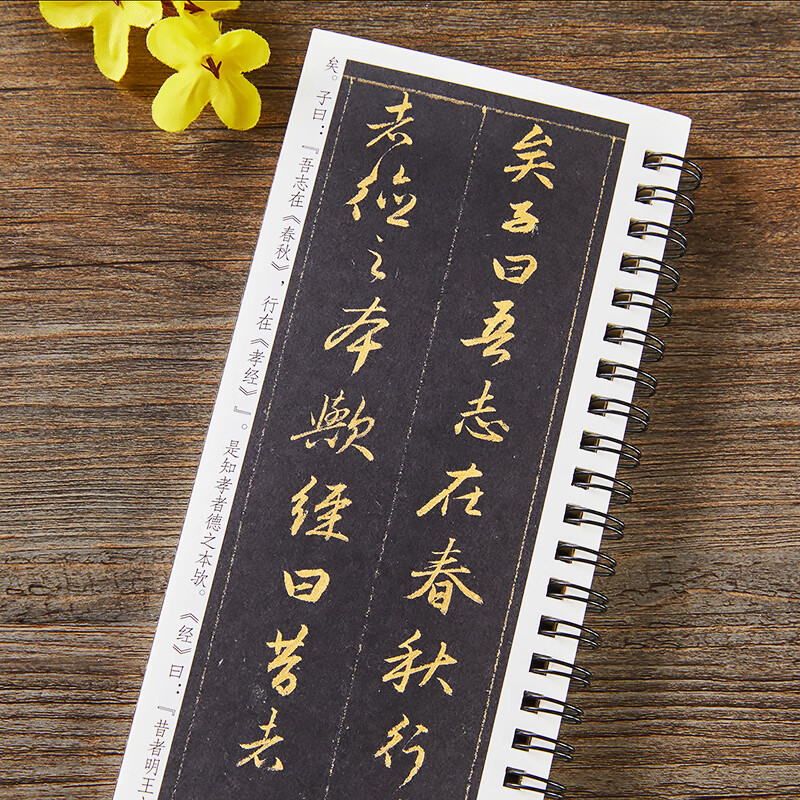 矣子曰吾志在春秋行
者德之本歟經曰昔者
矣。子曰：『吾志在《春秋》，行在《孝经》』。是知孝者德之本欤。《经》曰：『昔者明王